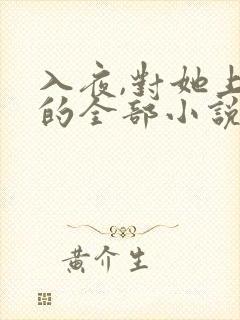 入夜,對她上
的全部小說
黃介生